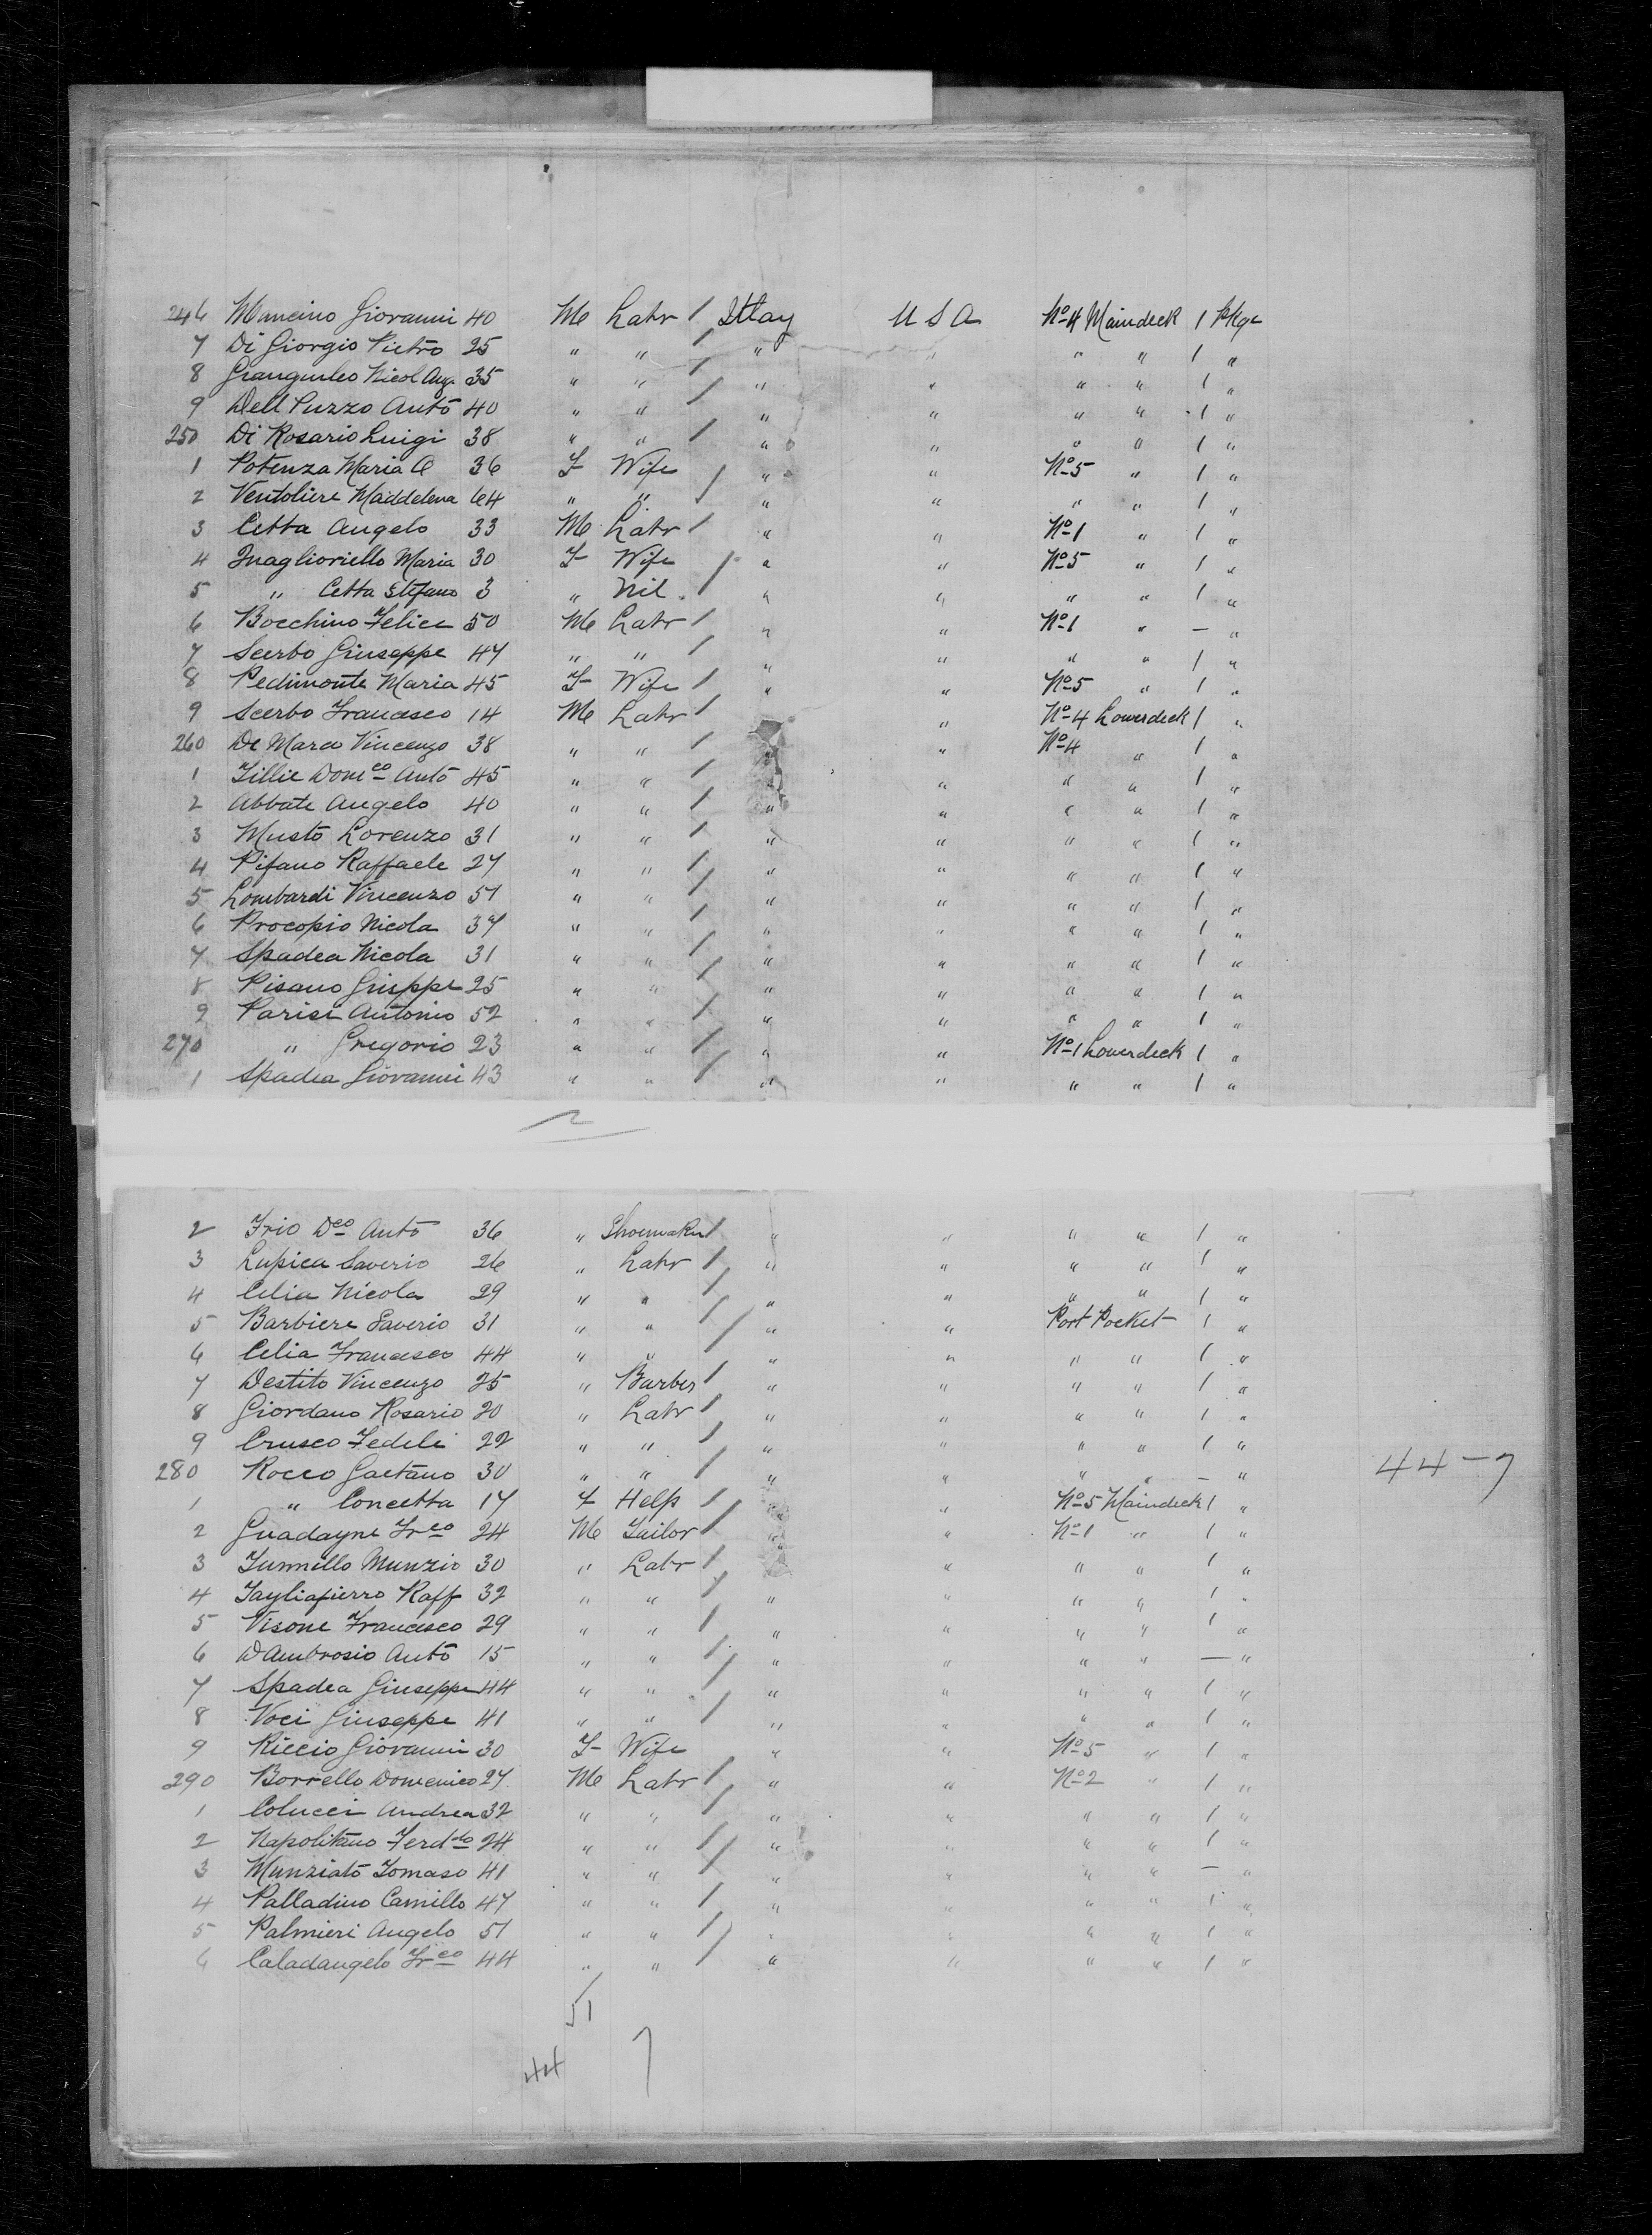 246 Mancino Giovanni 40 Me Labr / Itlay U S A No 4 Maindeck 1 Pkge
7 Di Giorgio Pietro 25 " " / " " " " 1 "
8 Nicol Ang. 35 " " / " " " " 1 "
9 Dell Puzzo Anto 40 " " / " " " " 1 "
250 Di Rosario Luigi 38 " " / " " " " 1 "
1 Potenza Maria A 36 F Wife " " No 5 " 1 "
2 Ventoliere Maddelena 64 " " / " " " " 1 "
3 Cetta Angelo 33 Me Labr / " " No 1 " 1 "
4 Quaglioriello Maria 30 F Wife " " No 5 " 1 "
5 " Cetta Stefano 3 " Nil. / " " " " 1 "
6 Bocchino Felice 50 Me Labr / " " No 1 " — "
7 Scerbo Giuseppe 47 " " / " " " " 1 "
8 Pedimonte Maria 45 F Wife / " " No 5 " 1 "
9 Scerbo Francesco 14 Me Labr / " No 4 Lowerdeck 1 "
260 De Marco Vincenzo 38 " " / " " No 4 " 1 "
1 Fillie Domco Anto 45 " " / " " " " 1 "
2 Abbate Angelo 40 " " / " " " " 1 "
3 Musto Lorenzo 31 " " / " " " " 1 "
4 Pifano Raffaele 27 " " / " " " " 1 "
5 Lombardi Vincenzo 51 " " / " " " " 1 "
6 Procopio Nicola 37 " " / " " " " 1 "
7 Spadea Nicola 31 " " / " " " " 1 "
8 Pisano Giuppe 25 " " / " " " " 1 "
9 Parisi Antonio 52 " " / " " " " 1 "
270 " Gregorio 23 " " / " " No 1 Lowerdeck 1 "
1 Spadea Giovanni 43 " " / " " " " 1 "
2 Frio Dco Anto 36 " Shoemaker / " " " " 1 "
3 Lupica Saverio 26 " Labr / " " " " 1 "
4 Celia Nicola 29 " " / " " " " 1 "
5 Barbiere Saverio 31 " " / " " Port Pocket 1 "
6 Celia Francesco 44 " " / " " " " 1 "
7 Destito Vincenzo 25 " Barber / " " " " 1 "
8 Giordano Rosario 20 " Labr / " " " " 1 "
9 Crusco Fedele 22 " " / " " " " 1 "
280 Rocco Gaetano 30 " " / " " " " — " 44 – 7
1 " Concetta 17 F Help / " " No 5 Maindeck 1 "
2 Guadayne Frco 24 Me Tailor / " " No 1 " 1 "
3 Munzio 30 " Labr / " " " " 1 "
4 Tagliafierro Raff 32 " " / " " " " 1 "
5 Visone Francesco 29 " " / " " " " 1 "
6 D'Ambrosio Anto 15 " " / " " " " — "
7 Spadea Giuseppe 44 " " / " " " " 1 "
8 Voci Giuseppe 41 " " / " " " " 1 "
9 Riccio Giovanni 30 F Wife " " No 5 " 1 "
290 Borrello Domenico 27 Me Labr / " " No 2 " 1 "
1 Colucci Andrea 32 " " / " " " " 1 "
2 Napolitano Ferddo 24 " " / " " " " 1 "
3 Munziato Tomaso 41 " " / " " " " — "
4 Palladino Camillo 47 " " / " " " " 1 "
5 Palmieri Angelo 51 " " / " " " " 1 "
6 Caladangelo Frco 44 " " / " " " " 1 "
51
44 7